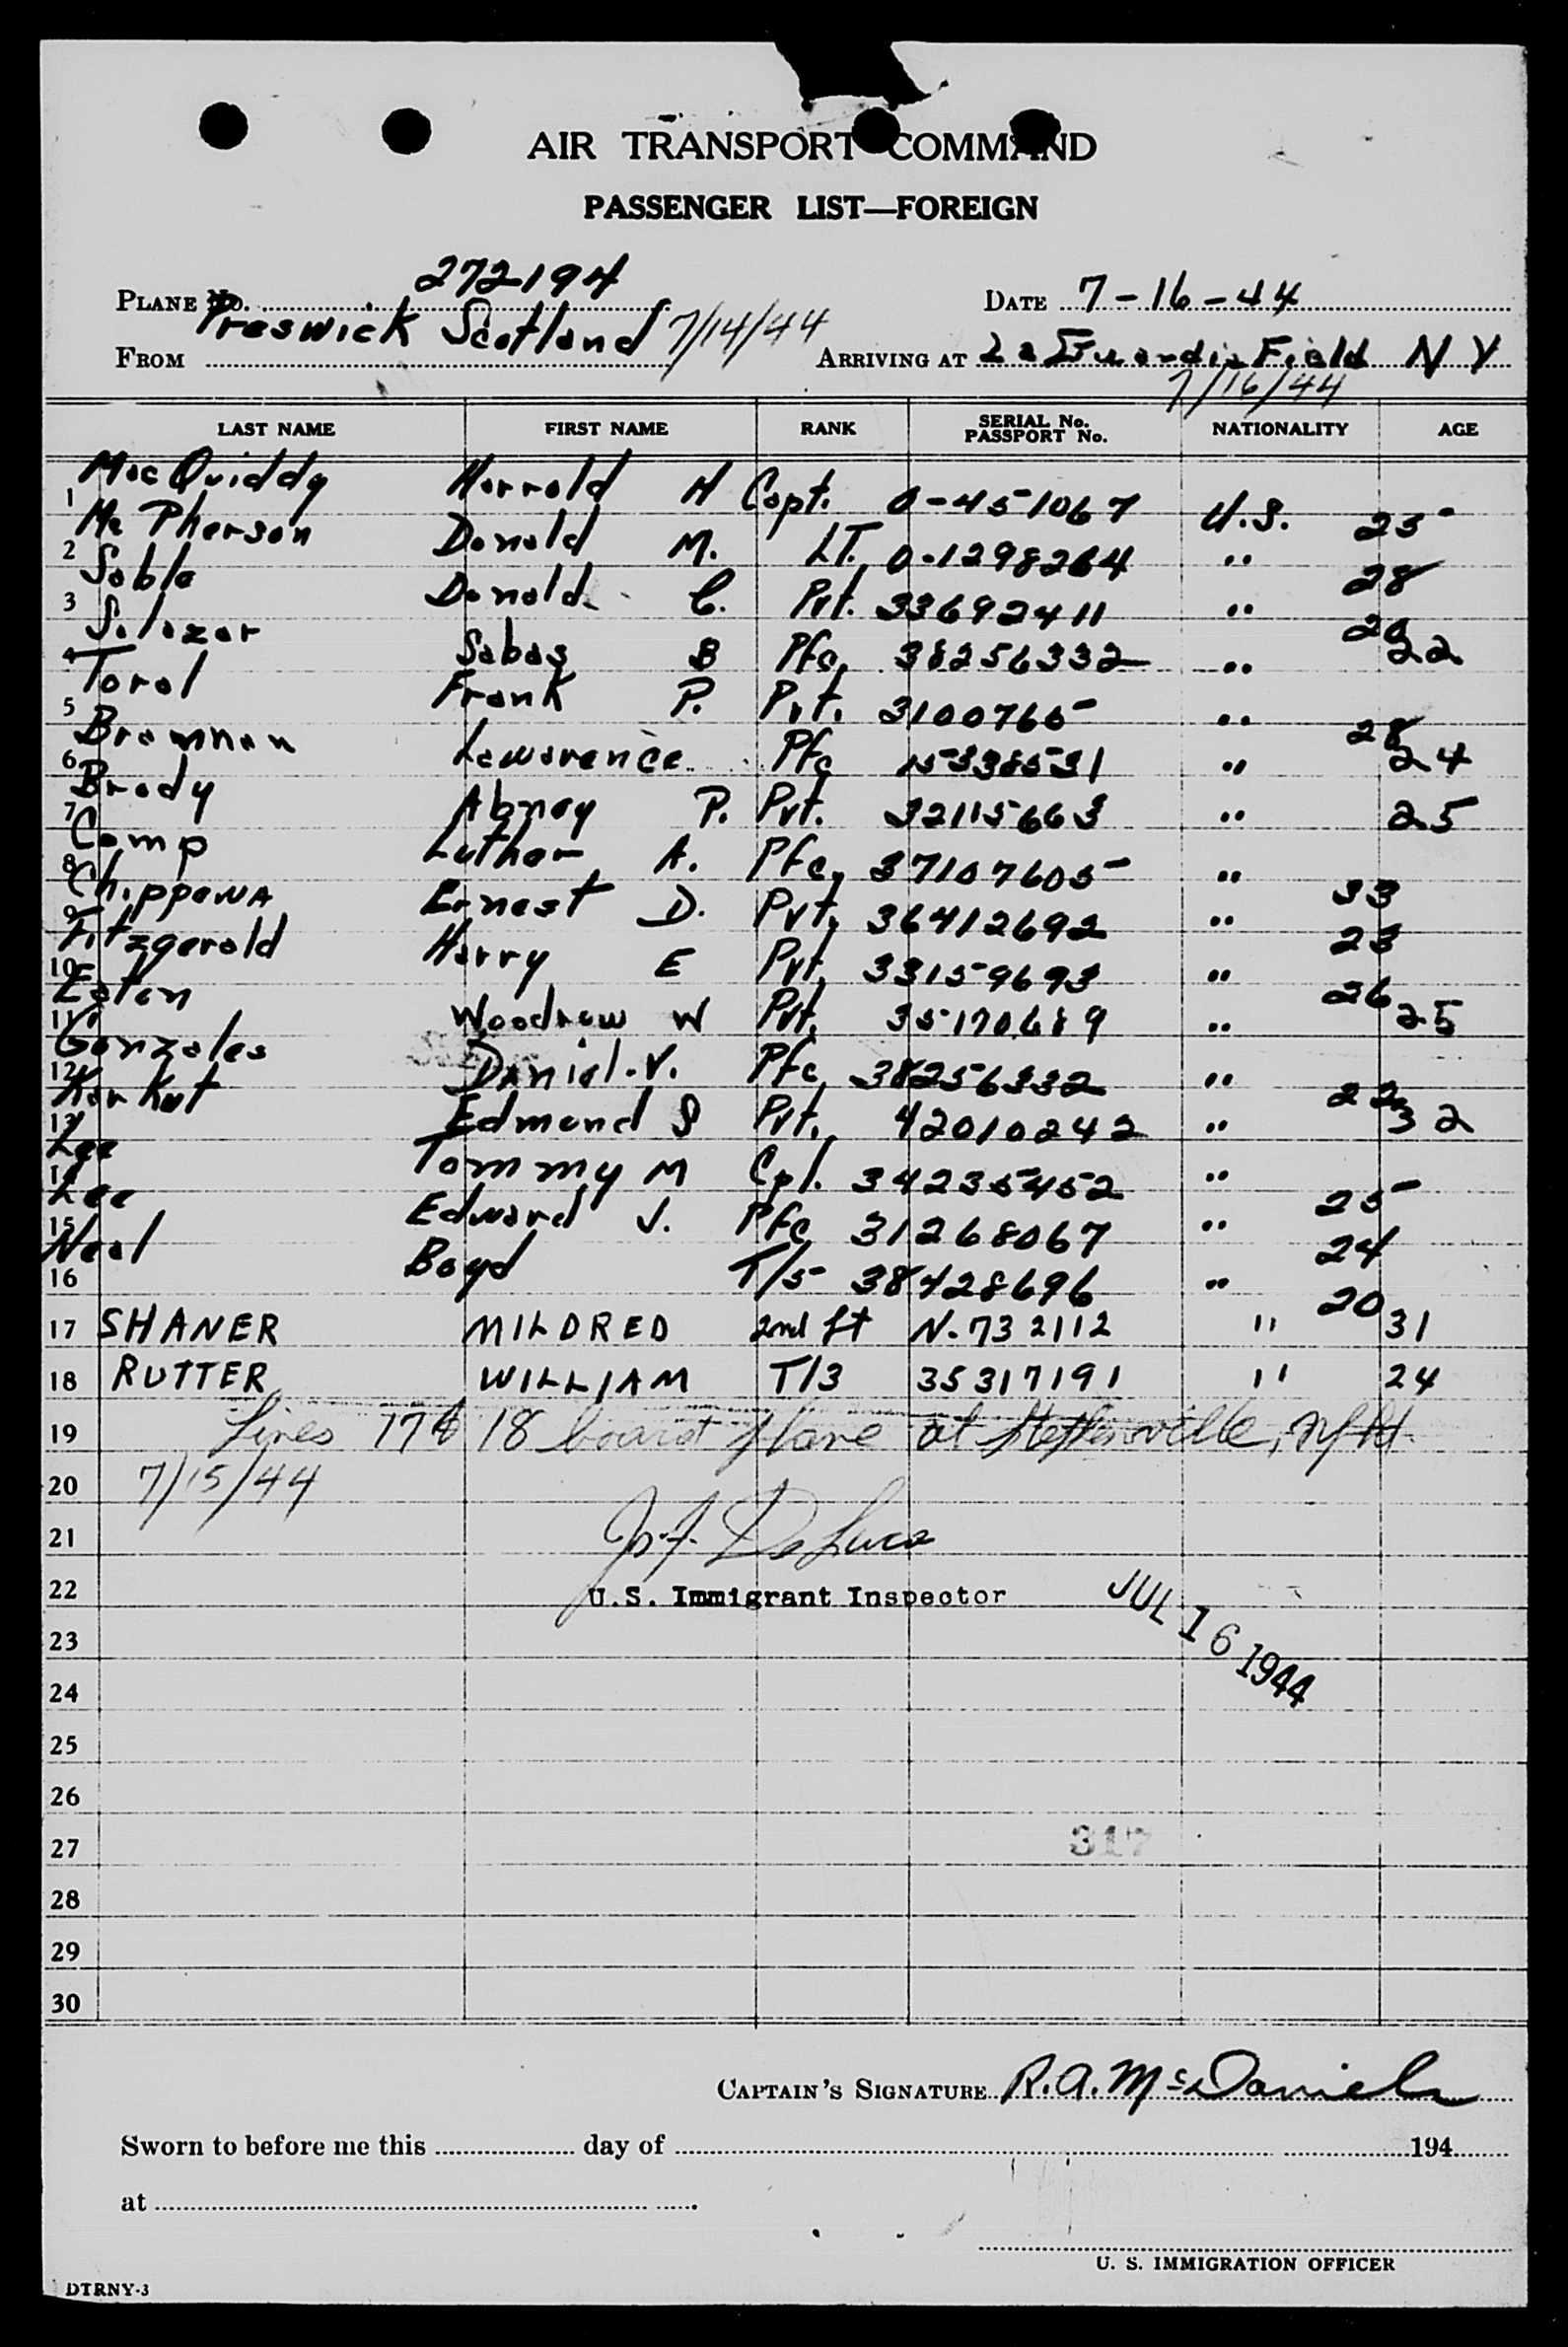 AIR TRANSPORT COMMAND
PASSENGER LIST—FOREIGN
PLANE No. 272194 DATE 7-16-44
FROM Preswick Scotland 7/14/44 ARRIVING AT La Guardia Field N Y
7/16/44
LAST NAME FIRST NAME RANK SERIAL No. PASSPORT No. NATIONALITY AGE
1 MacQuiddy Harrold H Capt. 0-451067 U.S. 25
2 McPherson Donald M. LT. 0-1298264 " 28
3 Soble Donald C. Pvt. 33692411 " 20
4 Salazar Sabas B Pfc. 38256332 " 22
5 Toral Frank P. Pvt. 3100765 " 28
6 Bramnan Lawarence Pfc 15338531 " 24
7 Brady Abney P. Pvt. 32115663 " 25
8 Camp Luther A. Pfc. 37107605 " 33
9 Chippewa Ernest D. Pvt. 36412692 " 23
10 Fitzgerald Harry E Pvt. 33159693 " 26
11 Eaton Woodrow W Pvt. 35170689 " 25
12 Gonzales Daniel. V. Pfc 38256332 " 22
13 Karkut Edmond S Pvt. 42010242 " 32
14 Lee Tommy M Cpl. 34235452 " 25
15 Lee Edward J. Pfc 31268067 " 24
16 Neal Boyd T/5 38428696 " 20
17 SHANER MILDRED 2nd Lt N-732112 " 31
18 RUTTER WILLIAM T/3 35317191 " 24
19 Lines 17 & 18 board plane at Stephenville, Nfld.
20 7/15/44
21 DeLuca
22 U.S. Immigrant Inspector JUL 16 1944
23
24
25
26
27 317
28
29
30
CAPTAIN'S SIGNATURE R.A. McDaniels
Sworn to before me this day of 194
at
U. S. IMMIGRATION OFFICER
DTRNY-3